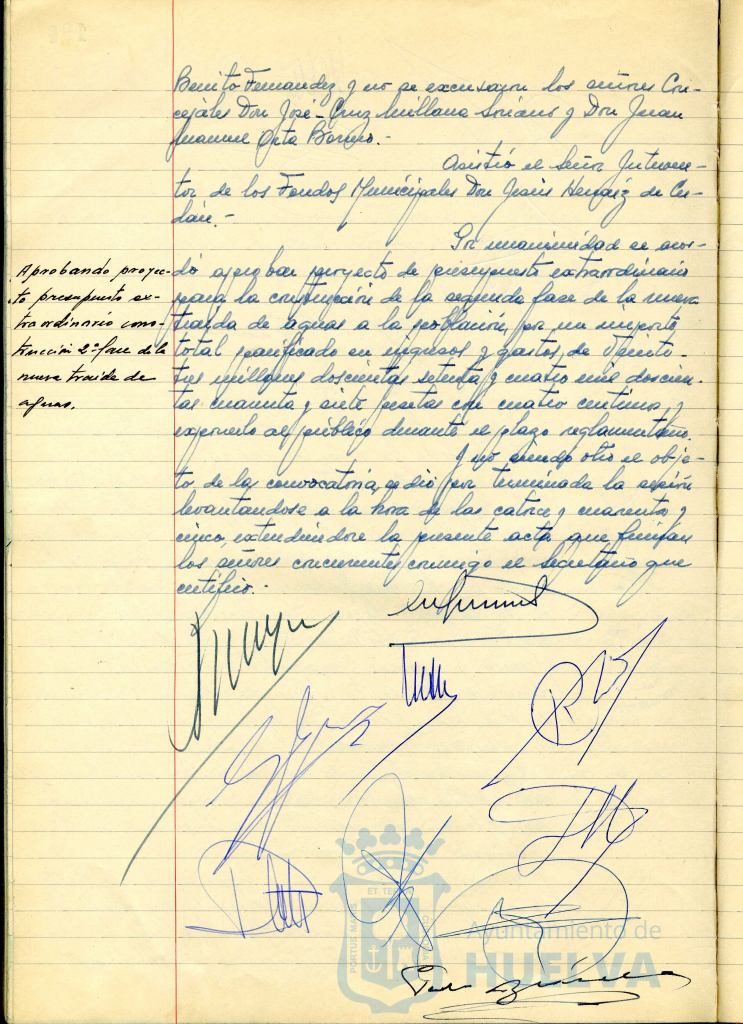 Benito Fernandez y no se excusaron los señores Con-
cejales Don José-Cruz Millana Soriano y Don Juan
Manuel Orta Borrero.-
Asistió el Señor Interven-
tor de los Fondos Municipales Don Jesús Hernáiz de
Por unanimidad se acor-
dó aprobar proyecto de presupuesto extraordinario
para la construcción de la segunda fase de la nueva
traida de aguas a la población, por un importe
total panificado en ingresos y gastos, de Veinti-
tres millones doscientas setenta y cuatro mil doscien-
tas cuarenta y siete pesetas con cuatro centimos, y
exponerlo al público durante el plazo reglamentario.
Y no siendo otro el obje-
to de la convocatoria, se dió por terminada la sesión
levantandose a la hora de las catorce y cuarenta y
cinco, extendiendose la presente acta que firman
los señores concurrentes conmigo el Secretario que
certifico.-
Aprobando proyec-
to presupuesto ex-
traordinario cons-
trucción 2ª fase de la
nueva traida de
aguas.
ET TERRÆ
PORTUS MARIS
Ayuntamiento de
HUELVA